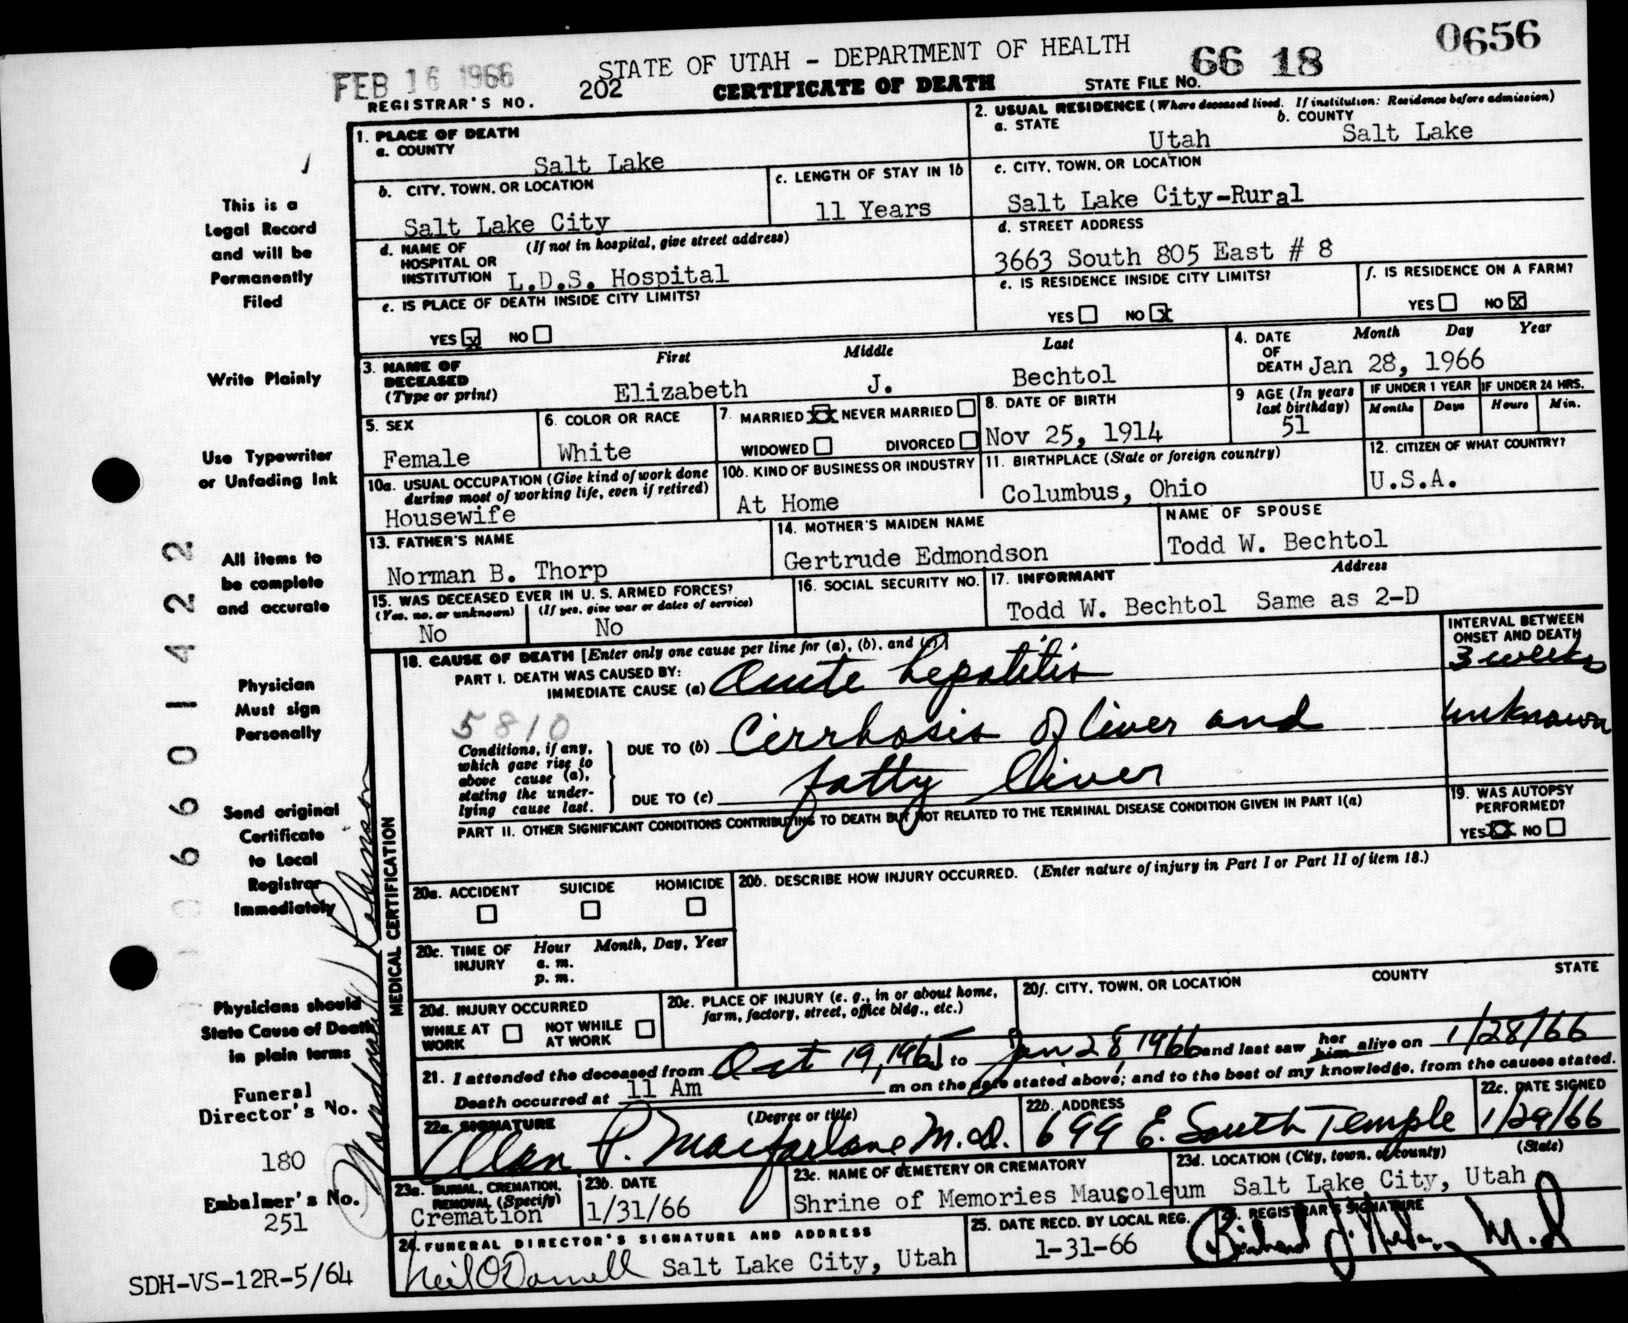 0656
STATE OF UTAH - DEPARTMENT OF HEALTH
FEB 16 1966
202
CERTIFICATE OF DEATH
STATE FILE NO. 66 18
REGISTRAR'S NO.
1. PLACE OF DEATH
a. COUNTY
Salt Lake
2. USUAL RESIDENCE (Where deceased lived. If institution: Residence before admission)
a. STATE
Utah
b. COUNTY
Salt Lake
b. CITY, TOWN, OR LOCATION
Salt Lake City
c. LENGTH OF STAY IN 1b
11 Years
c. CITY, TOWN, OR LOCATION
Salt Lake City-Rural
d. NAME OF HOSPITAL OR INSTITUTION
(If not in hospital, give street address)
L.D.S. Hospital
d. STREET ADDRESS
3663 South 805 East # 8
e. IS PLACE OF DEATH INSIDE CITY LIMITS?
YES X NO
e. IS RESIDENCE INSIDE CITY LIMITS?
YES NO X
f. IS RESIDENCE ON A FARM?
YES NO X
3. NAME OF DECEASED (Type or print)
First Middle Last
Elizabeth J. Bechtol
4. DATE OF DEATH
Month Day Year
Jan 28, 1966
5. SEX
Female
6. COLOR OR RACE
White
7. MARRIED XX NEVER MARRIED
WIDOWED DIVORCED
8. DATE OF BIRTH
Nov 25, 1914
9 AGE (In years last birthday)
51
IF UNDER 1 YEAR
Months Days
IF UNDER 24 HRS.
Hours Min.
10a. USUAL OCCUPATION (Give kind of work done during most of working life, even if retired)
Housewife
10b. KIND OF BUSINESS OR INDUSTRY
At Home
11. BIRTHPLACE (State or foreign country)
Columbus, Ohio
12. CITIZEN OF WHAT COUNTRY?
U.S.A.
13. FATHER'S NAME
Norman B. Thorp
14. MOTHER'S MAIDEN NAME
Gertrude Edmondson
NAME OF SPOUSE
Todd W. Bechtol
15. WAS DECEASED EVER IN U. S. ARMED FORCES?
(Yes, no, or unknown) (If yes, give war or dates of service)
No No
16. SOCIAL SECURITY NO.
17. INFORMANT Address
Todd W. Bechtol Same as 2-D
MEDICAL CERTIFICATION
18. CAUSE OF DEATH [Enter only one cause per line for (a), (b), and (c)]
INTERVAL BETWEEN ONSET AND DEATH
PART I. DEATH WAS CAUSED BY:
IMMEDIATE CAUSE (a) Acute hepatitis
3 weeks
5810
Conditions, if any, which gave rise to above cause (a), stating the underlying cause last.
DUE TO (b) Cirrhosis of liver and
unknown
DUE TO (c) fatty liver
PART II. OTHER SIGNIFICANT CONDITIONS CONTRIBUTING TO DEATH BUT NOT RELATED TO THE TERMINAL DISEASE CONDITION GIVEN IN PART I(a)
19. WAS AUTOPSY PERFORMED?
YES X NO
20a. ACCIDENT SUICIDE HOMICIDE
20b. DESCRIBE HOW INJURY OCCURRED. (Enter nature of injury in Part I or Part II of item 18.)
20c. TIME OF INJURY
Hour Month, Day, Year
a. m.
p. m.
20d. INJURY OCCURRED
WHILE AT WORK NOT WHILE AT WORK
20e. PLACE OF INJURY (e. g., in or about home, farm, factory, street, office bldg., etc.)
20f. CITY, TOWN, OR LOCATION COUNTY STATE
21. I attended the deceased from Oct 19, 1965 to Jan 28, 1966 and last saw her him alive on 1/28/66
Death occurred at 11 Am m on the date stated above; and to the best of my knowledge, from the causes stated.
22a. SIGNATURE (Degree or title)
Alan P. Macfarlane M.D.
22b. ADDRESS
699 E. South Temple
22c. DATE SIGNED
1/29/66
23a. BURIAL, CREMATION, REMOVAL (Specify)
Cremation
23b. DATE
1/31/66
23c. NAME OF CEMETERY OR CREMATORY
Shrine of Memories Mausoleum
23d. LOCATION (City, town, or county) (State)
Salt Lake City, Utah
24. FUNERAL DIRECTOR'S SIGNATURE AND ADDRESS
Neil O'Donnell Salt Lake City, Utah
25. DATE RECD. BY LOCAL REG.
1-31-66
REGISTRAR'S SIGNATURE
M.D
This is a
Legal Record
and will be
Permanently
Filed
Write Plainly
Use Typewriter
or Unfading Ink
All items to
be complete
and accurate
Physician
Must sign
Personally
Send original
Certificate
to Local
Registrar
Immediately
Physicians should
State Cause of Death
in plain terms
Funeral
Director's No.
180
Embalmer's No.
251
SDH-VS-12R-5/64
06601422
Robinson